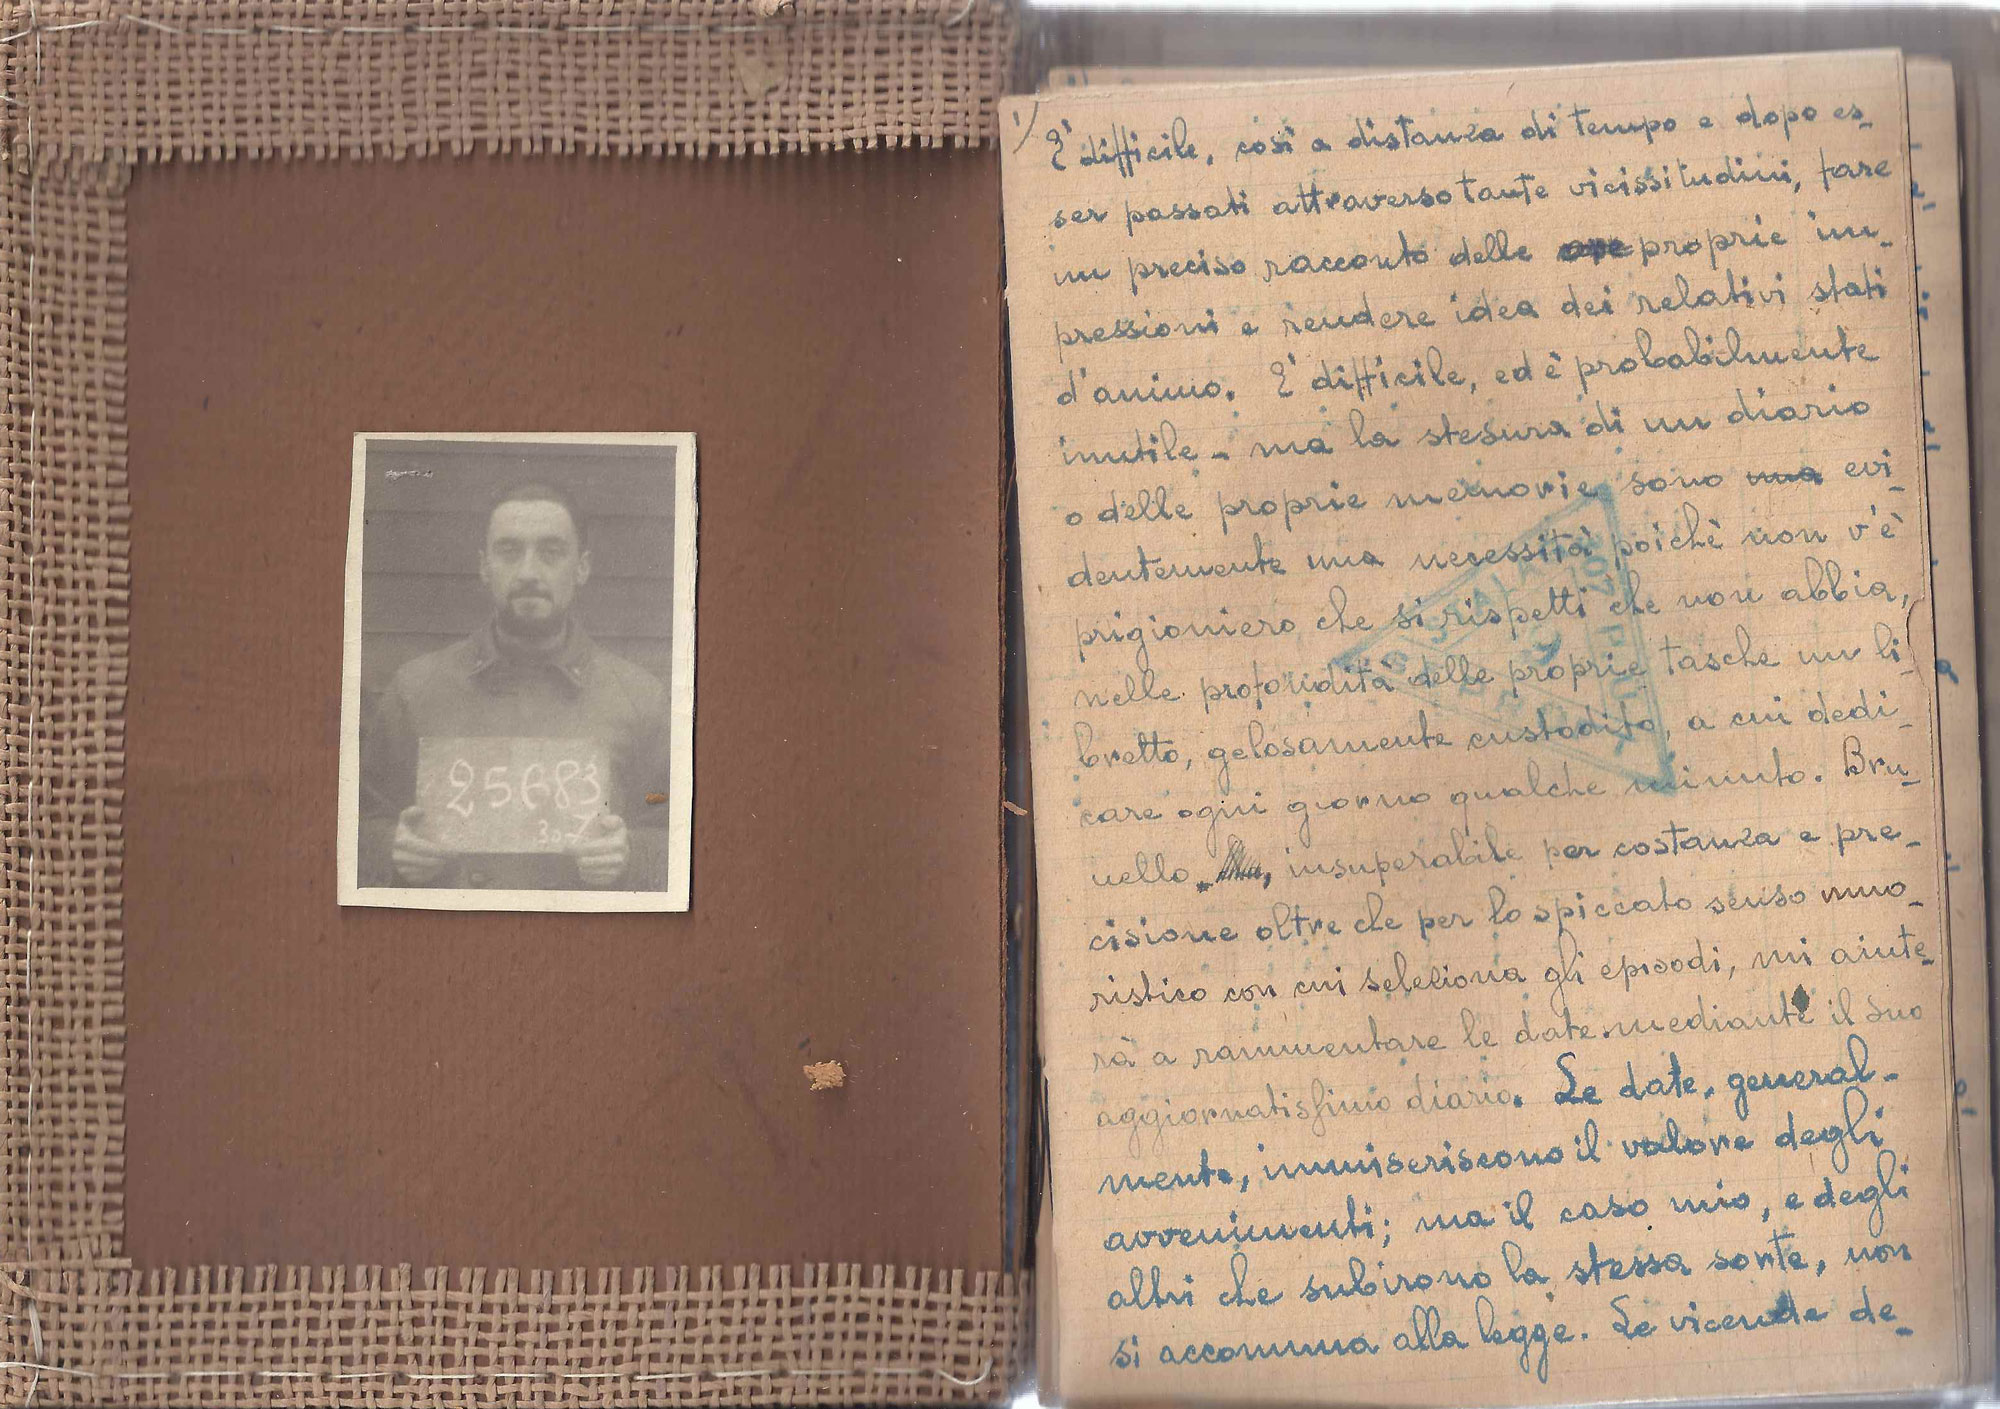 25683
307
1)
E' difficile, così a distanza di tempo e dopo es-
ser passati attraverso tante vicissitudini, fare
un preciso racconto delle proprie im-
pressioni e rendere idea dei relativi stati
d'animo. E' difficile, ed è probabilmente
inutile - ma la stesura di un diario
o delle proprie memorie sono una evi-
dentemente una necessità poichè non v'è
prigioniero che si rispetti che non abbia,
nelle profondità delle proprie tasche un li-
bretto, gelosamente custodito, a cui dedi-
care ogni giorno qualche minuto. Bru-
nello, insuperabile per costanza e pre-
cisione oltre che per lo spiccato senso umo-
ristico con cui seleziona gli episodi, mi aiute-
rà a rammentare le date mediante il suo
aggiornatissimo diario. Le date, general-
mente, immiseriscono il valore degli
avvenimenti; ma il caso mio, e degli
altri che subirono la stessa sorte, non
si accomuna alla legge. Le vicende de-